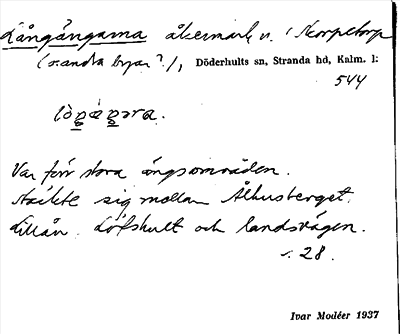 Långängarna åkermark n. i Skorpetorp
(o. andra byar?), Döderhults sn, Stranda hd, Kalm. l:
544
Var förr stora ängsområden.
Sträckte sig mellan Århusberget,
Lillån, Löfshult och landsvägen.
s. 28.
Ivar Modéer 1937